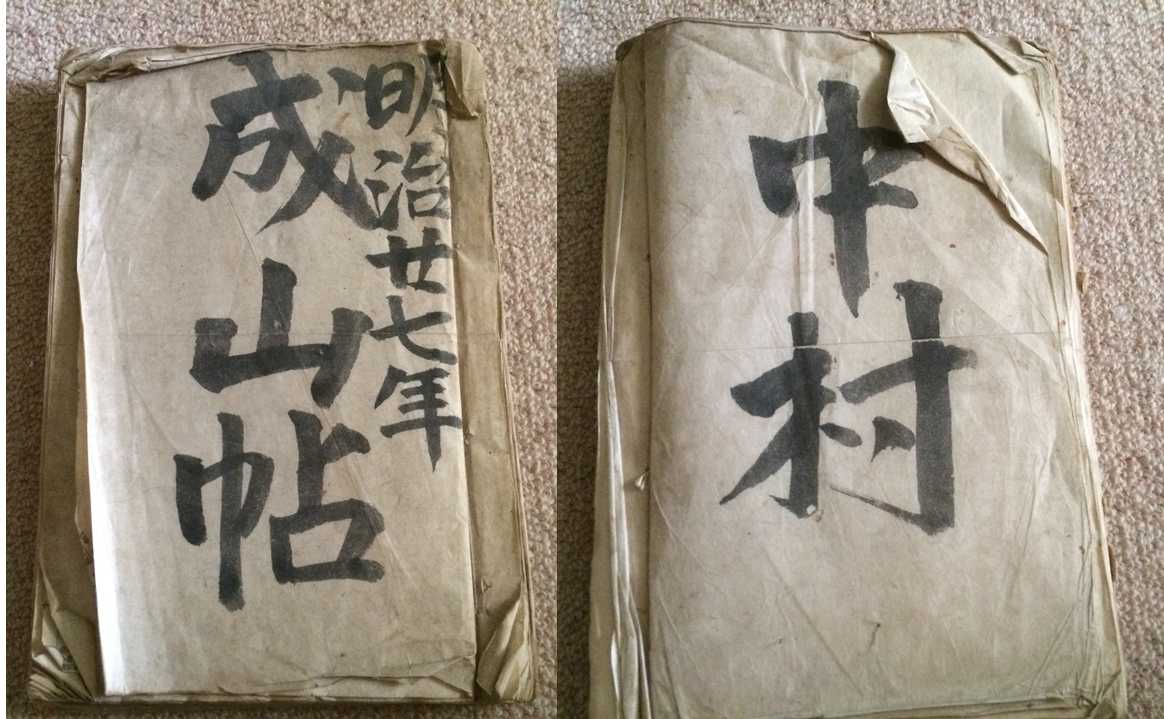 明治廿七年
成山帖
中村